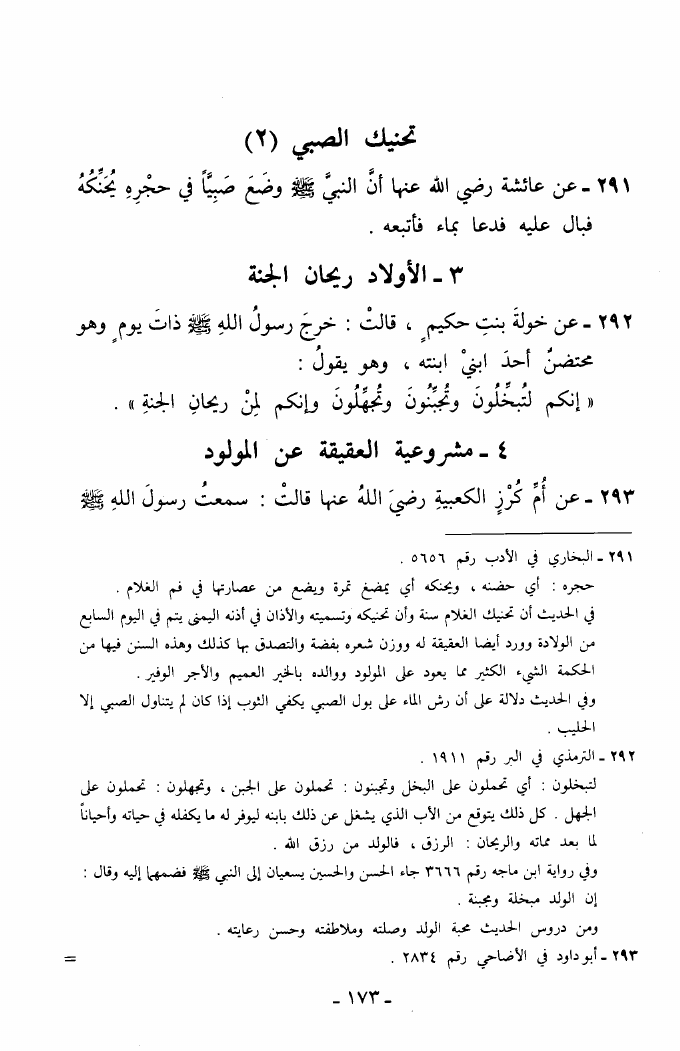 تحنيك الصبي (٢)
٢٩١ ـ عن عائشة رضي الله عنها أنَّ النبيَّ ﷺ وضَعَ صَبِيّاً في حجْرِهِ يُحَنِّكُهُ
فبال عليه فدعا بماء فأتبعه .
٣ ـ الأولاد ريحان الجنة
٢٩٢ ـ عن خولةَ بنتِ حكيمٍ ، قالتْ : خرجَ رسولُ اللهِ ﷺ ذاتَ يومٍ وهو
محتضنٌ أحدَ ابنيْ ابنته ، وهو يقولُ :
« إنكم لتُبخِّلُونَ وتُجبِّنُونَ وتُجهِّلُونَ وإنكم لِمنْ ريحانِ الجنةِ » .
٤ ـ مشروعية العقيقة عن المولود
٢٩٣ ـ عن أُمِّ كُرْزٍ الكعبيةِ رضيَ اللهُ عنها قالتْ : سمعتُ رسولَ اللهِ ﷺ
٢٩١ ـ البخاري في الأدب رقم ٥٦٥٦ .
حجره : أي حضنه ، ويحنكه أي يمضغ تمرة ويضع من عصارتها في فم الغلام .
في الحديث أن تحنيك الغلام سنة وأن تحنيكه وتسميته والأذان في أذنه اليمنى يتم في اليوم السابع
من الولادة وورد أيضا العقيقة له ووزن شعره بفضة والتصدق بها كذلك وهذه السنن فيها من
الحكمة الشيء الكثير مما يعود على المولود ووالده بالخير العميم والأجر الوفير .
وفي الحديث دلالة على أن رش الماء على بول الصبي يكفي الثوب إذا كان لم يتناول الصبي إلا
الحليب .
٢٩٢ ـ الترمذي في البر رقم ١٩١١ .
لتبخلون : أي تحملون على البخل وتجبنون : تحملون على الجبن ، وتجهلون : تحملون على
الجهل . كل ذلك يتوقع من الأب الذي يشغل عن ذلك بابنه ليوفر له ما يكفله في حياته وأحياناً
لما بعد مماته والريحان : الرزق ، فالولد من رزق الله .
وفي رواية ابن ماجه رقم ٣٦٦٦ جاء الحسن والحسين يسعيان إلى النبي ﷺ فضمهما إليه وقال :
إن الولد مبخلة ومجبنة .
ومن دروس الحديث محبة الولد وصلته وملاطفته وحسن رعايته .
٢٩٣ ـ أبو داود في الأضاحي رقم ٢٨٣٤ . =
ـ ١٧٣ ـ